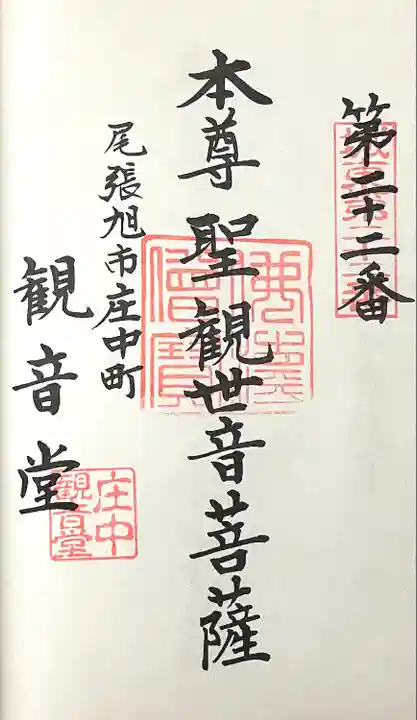 第二十二番
本尊 聖観世音菩薩
尾張旭市庄中町
観音堂
佛法僧寳
庄中
観音堂